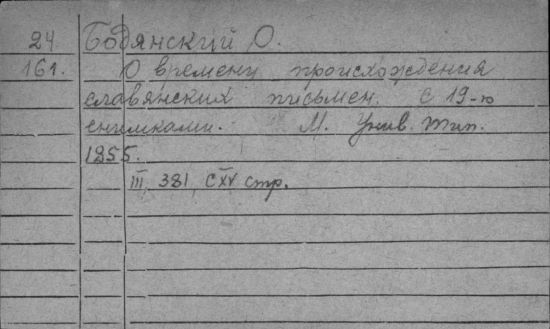 24 Бодянский О.
161. О времени происхождения
славянских письмен. с 19-ю
снимками. М. Унив. тип.
1855.
III, 381, CXV стр.